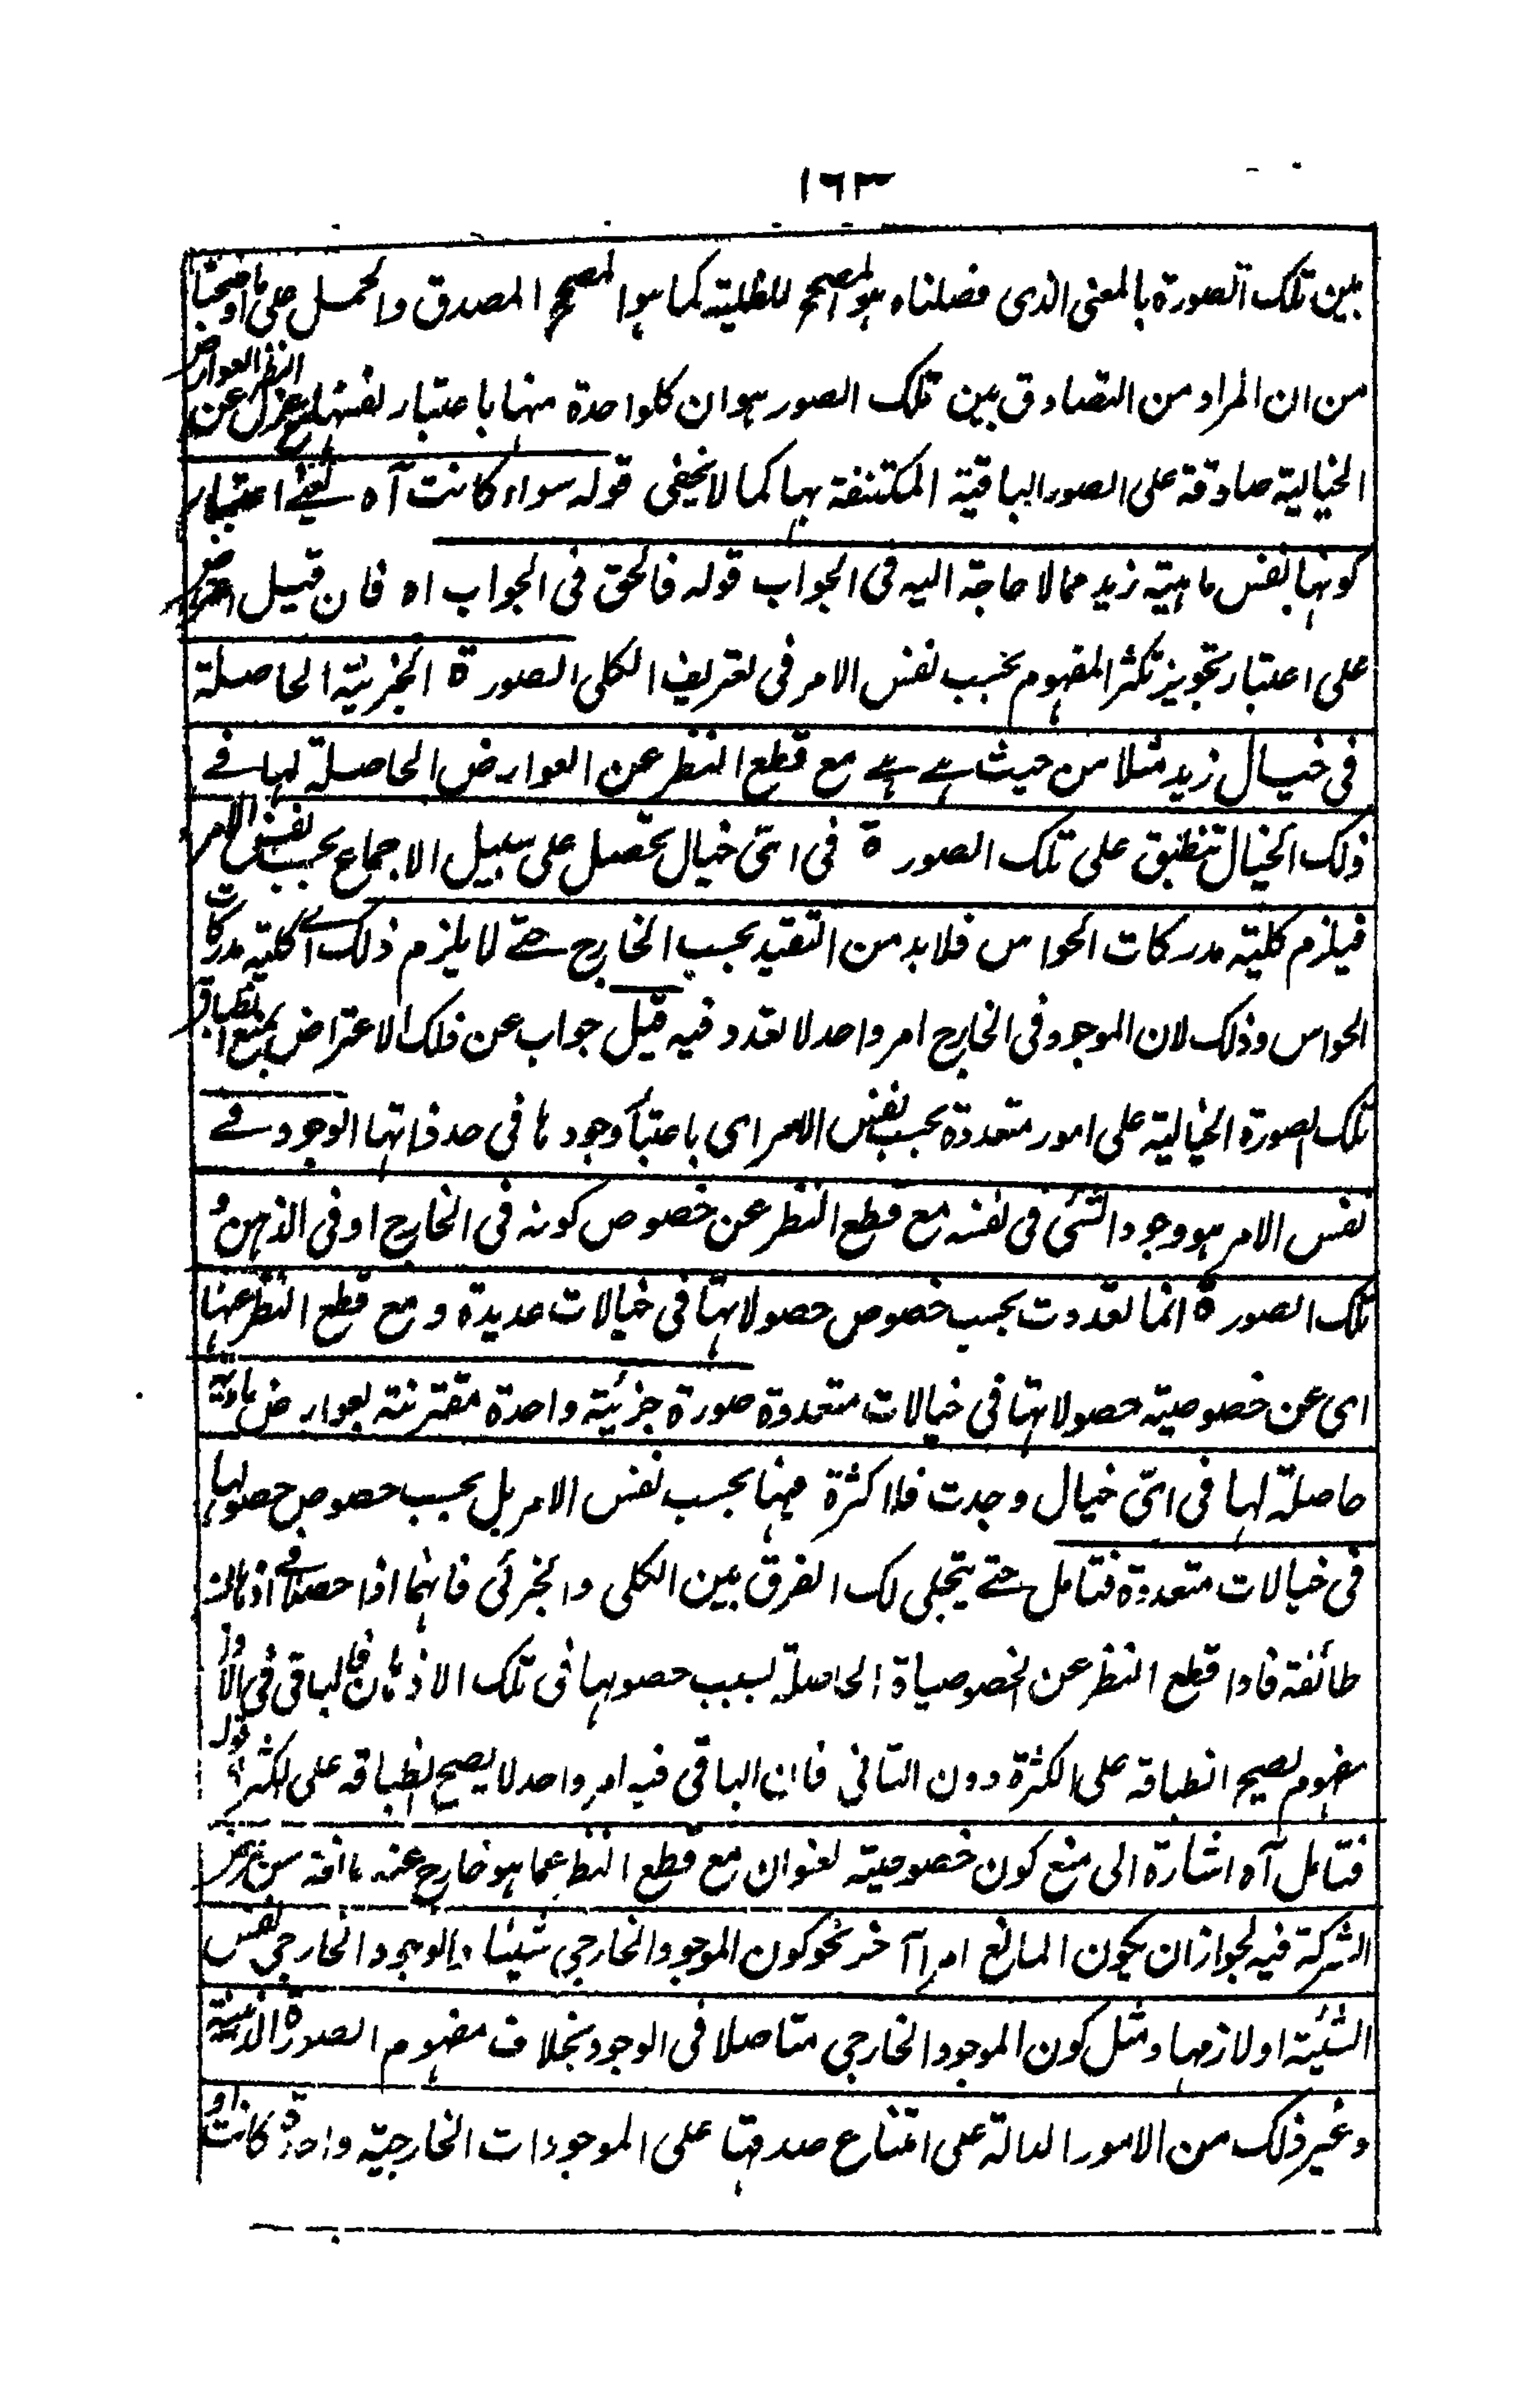 ١٦٣
بين تلك الصورة بالمعنى الذى فصلناه هو المصحح للظلية كما هو المصحح المصدق والحمل على ما اوضحنا
من ان المراد من التصادق بين تلك الصور هو ان كلواحدة منها باعتبار نفسها مع عزل النظر عن العوارض
الخيالية صادقة على الصور الباقية المكتنفة بها كما لا يخفى قوله سواء كانت آه يعنے اعتبار
كونها نفس ماهية زيد مما لا حاجة اليه فى الجواب قوله فالحق فى الجواب اه فان قيل اعترض
على اعتبار تجويز تكثر المفهوم بحسب نفس الامر فى تعريف الكلى الصورة الجزئية الحاصلة
فى خيال زيد مثلا من حيث هے هے مع قطع النظر عن العوارض الحاصلة لها فے
ذلك الخيال تنطبق على تلك الصورة فى اىّ خيال تحصل على سبيل الاجماع بحسب نفس الامر
فيلزم كلية مدركات الحواس فلا بد من التقيد بحسب الخارج حتے لا يلزم ذلك اے كلية مدركات
الحواس وذلك لان الموجود فى الخارج امر واحد لا تعدد فيه قيل جواب عن ذلك الاعتراض بمنع انطباق
تلك الصورة الخيالية على امور متعددة بحسب نفس الامر اى باعتبار وجودها فى حد ذاتها الوجود فے
نفس الامر هو وجود الشئ فى نفسه مع قطع النظر عن خصوص كونه فى الخارج او فى الذهن و
تلك الصورة انما تعددت بحسب خصوص حصولاتها فى خيالات عديدة و مع قطع النظر عنها
اى عن خصوصية حصولاتها فى خيالات متعددة صورة جزئية واحدة مقترنة بعوارض مادية
حاصلة لها فى اىّ خيال وجدت فلا كثرة فيها بحسب نفس الامر بل بحسب خصوص حصولها
فى خيالات متعددة فتامل حتے يتجلى لك الفرق بين الكلى والجزئى فانهما اذا حصلا فے اذهان
طائفة فاذا قطع النظر عن الخصوصياة الحاصلة بسبب حصولها فى تلك الاذهان فالباقى فى الاول
مفهوم يصح انطباقه على الكثرة دون الثانى فان الباقى فيه امر واحد لا يصح انطباقه على الكثرة قوله
فتامل آه اشارة الى منع كون خصوصية لعنوان مع قطع النظر عما هو خارج عنه مانعة من فرض
الشركة فيه لجواز ان يكون المانع امرا آخر نحو كون الموجود الخارجي شيئا والوجود الخارجي نفس
الشيئية او لازمها ومثل كون الموجود الخارجي متاصلا فى الوجود بخلاف مفهوم الصورة الذهنية
وغير ذلك من الامور الدالة على امتناع صدقها على الموجودات الخارجية واحدة كانت او